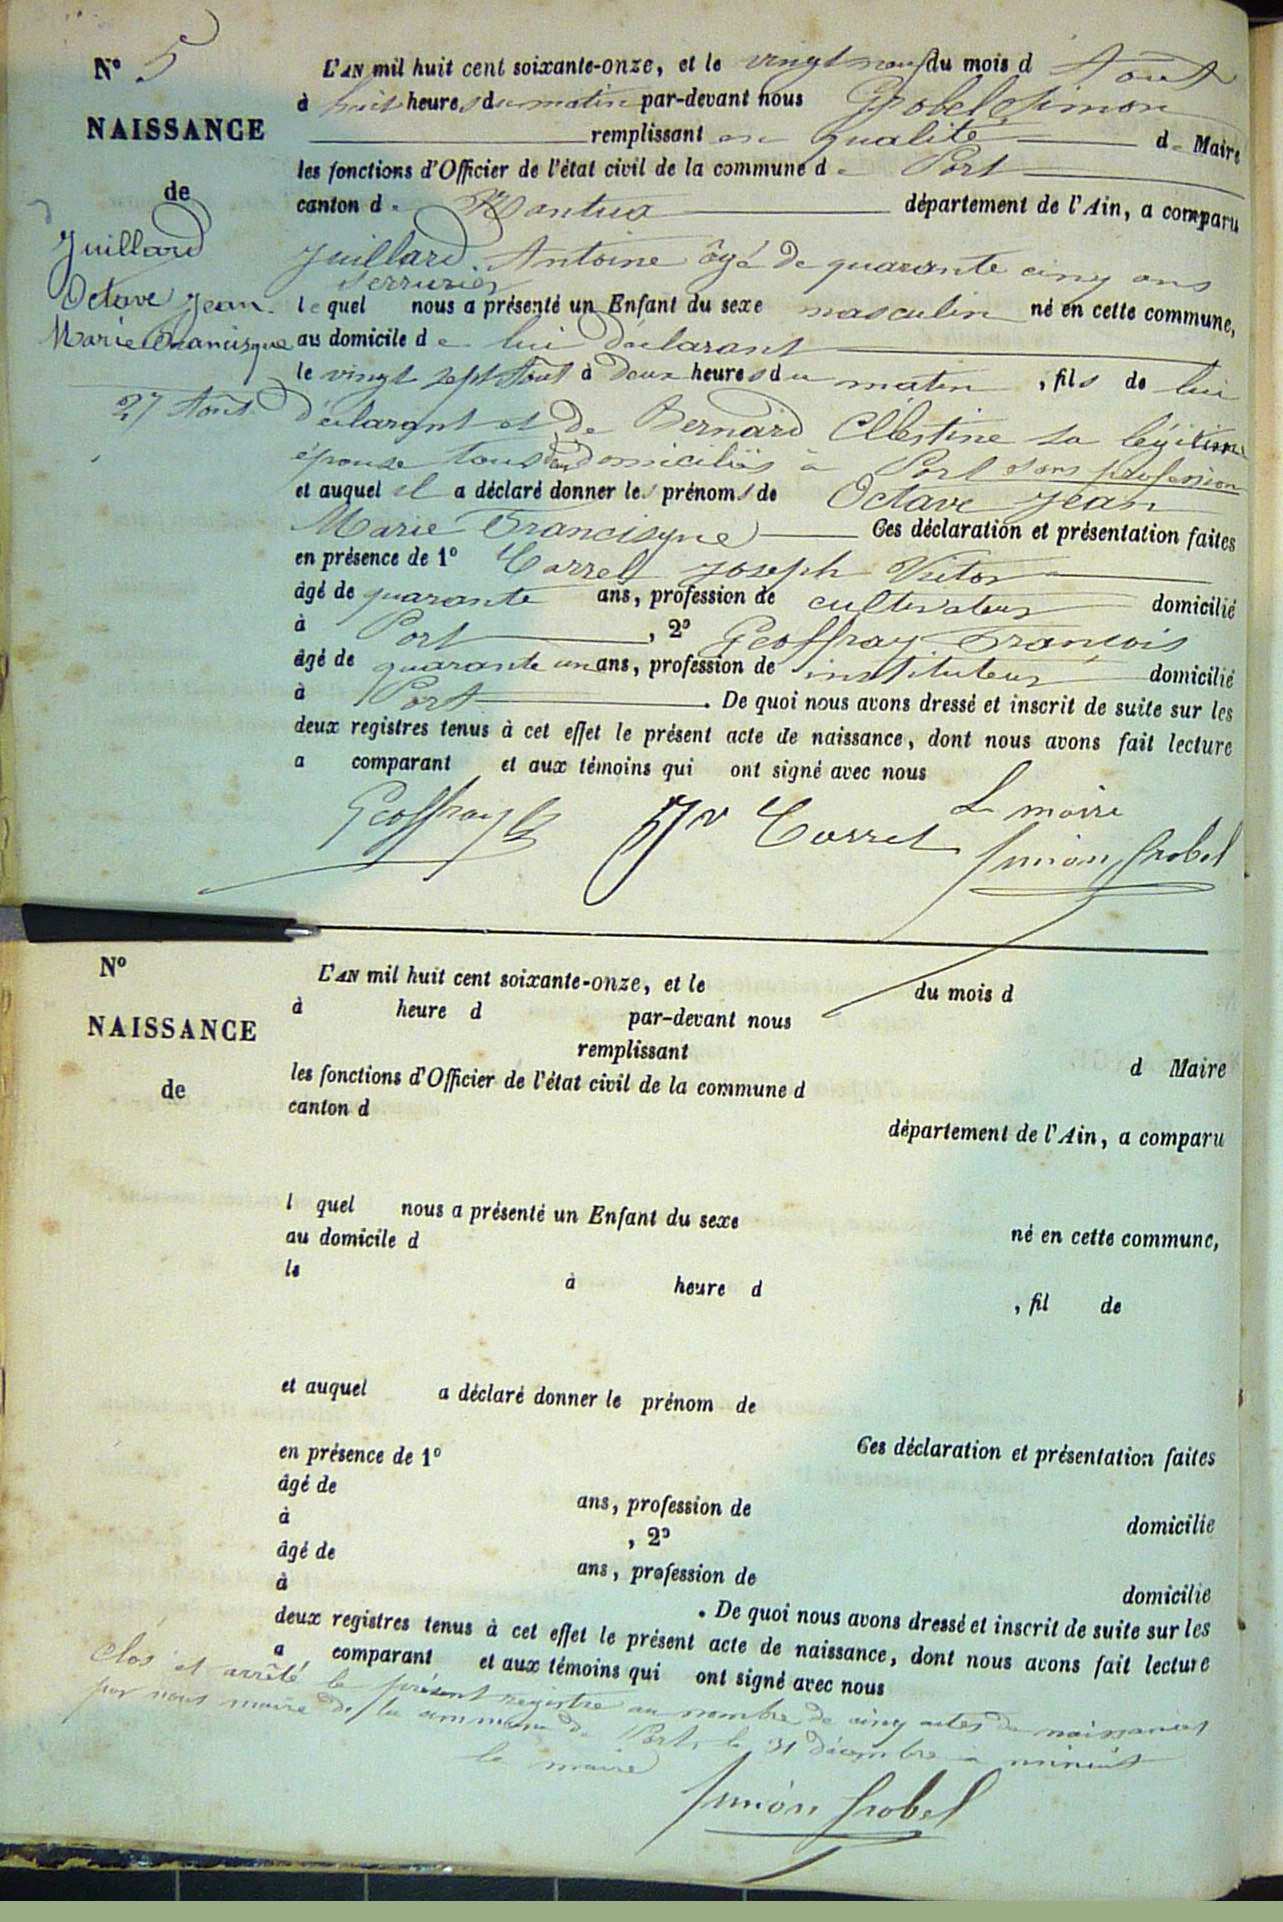 N° 5
NAISSANCE
de
Juillard
Octave Jean
Marie Francisque
27 Août
L'AN mil huit cent soixante-onze, et le vingt neuf du mois d'Août
à huit heures du matin par-devant nous Grobel Simon
remplissant en qualité de Maire
les fonctions d'Officier de l'état civil de la commune de Port
canton de Nantua département de l'Ain, a comparu
Juillard Antoine âgé de quarante cinq ans
serrurier
lequel nous a présenté un Enfant du sexe masculin né en cette commune,
au domicile de lui déclarant
le vingt sept Août à deux heures du matin, fils de lui
déclarant et de Bernard Célestine sa légitime
épouse tous deux domiciliés à Port sans profession
et auquel il a déclaré donner les prénoms de Octave Jean
Marie Francisque Ces déclaration et présentation faites
en présence de 1° Carrel Joseph Victor
âgé de quarante ans, profession de cultivateur domicilié
à Port, 2° Geoffray François
âgé de quarante un ans, profession de instituteur domicilié
à Port. De quoi nous avons dressé et inscrit de suite sur les
deux registres tenus à cet effet le présent acte de naissance, dont nous avons fait lecture
a comparant et aux témoins qui ont signé avec nous
Le maire
Geoffray Jh Vr Carrel Simon Grobel
N°
NAISSANCE
de
L'AN mil huit cent soixante-onze, et le du mois d
à heure d par-devant nous
remplissant d Maire
les fonctions d'Officier de l'état civil de la commune d
canton d département de l'Ain, a comparu
l quel nous a présenté un Enfant du sexe né en cette commune,
au domicile d
le à heure d , fil de
et auquel a déclaré donner le prénom de
Ces déclaration et présentation faites
en présence de 1°
âgé de ans, profession de domicilié
à , 2°
âgé de ans, profession de domicilié
à . De quoi nous avons dressé et inscrit de suite sur les
deux registres tenus à cet effet le présent acte de naissance, dont nous avons fait lecture
a comparant et aux témoins qui ont signé avec nous
Clos et arrêté le présent registre au nombre de cinq actes de naissances
par nous maire de la commune de Port, le 31 décembre à minuit
le maire
Simon Grobel